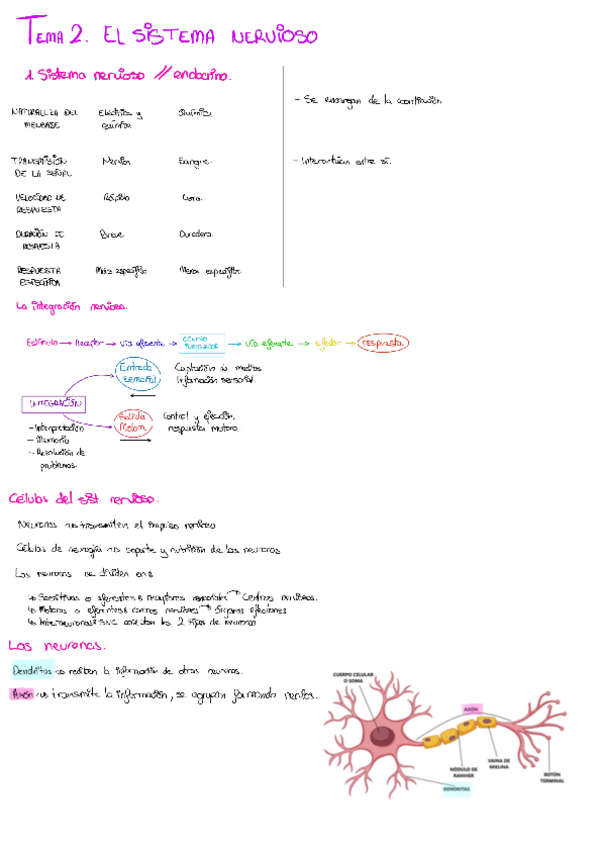 TEMA 2. EL SISTEMA NERVIOSO
1. Sistema nervioso // endocrino.
NATURALEZA DEL MENSAJE
Eléctrica y química
Química
- Se encargan de la coordinación
TRANSMISIÓN DE LA SEÑAL
Nervios
Sangre
- Interactúan entre sí.
VELOCIDAD DE RESPUESTA
Rápida
Lenta
DURACIÓN DE RESPUESTA
Breve
Duradera
RESPUESTA ESPECÍFICA
Más específica
Menos específica
La integración nerviosa.
Estímulo → Receptor → vía aferente → CENTRO → vía eferente → efector → respuesta
Entrada sensorial
Captación de medios
Información sensorial
INTEGRACIÓN
Salida Motora
Control y ejecución
respuesta motora
- Interpretación
- Memoria
- Resolución de problemas.
Células del sist. nervioso.
Neuronas transmiten el impulso nervioso
Células de neuroglía soporte y nutrición de las neuronas
Las neuronas se dividen en:
Sensitivas o aferentes: receptores sensoriales → Centros nerviosos.
Motoras o eferentes: centros nerviosos → órganos efectores
Interneuronas: SNC conectan los 2 tipos de neuronas
Las neuronas.
Dendritas reciben la información de otras neuronas.
Axón transmite la información, se agrupan formando nervios.
CUERPO CELULAR O SOMA
AXÓN
VAINA DE MIELINA
NÓDULO DE RANVIER
BOTÓN TERMINAL
DENDRITAS